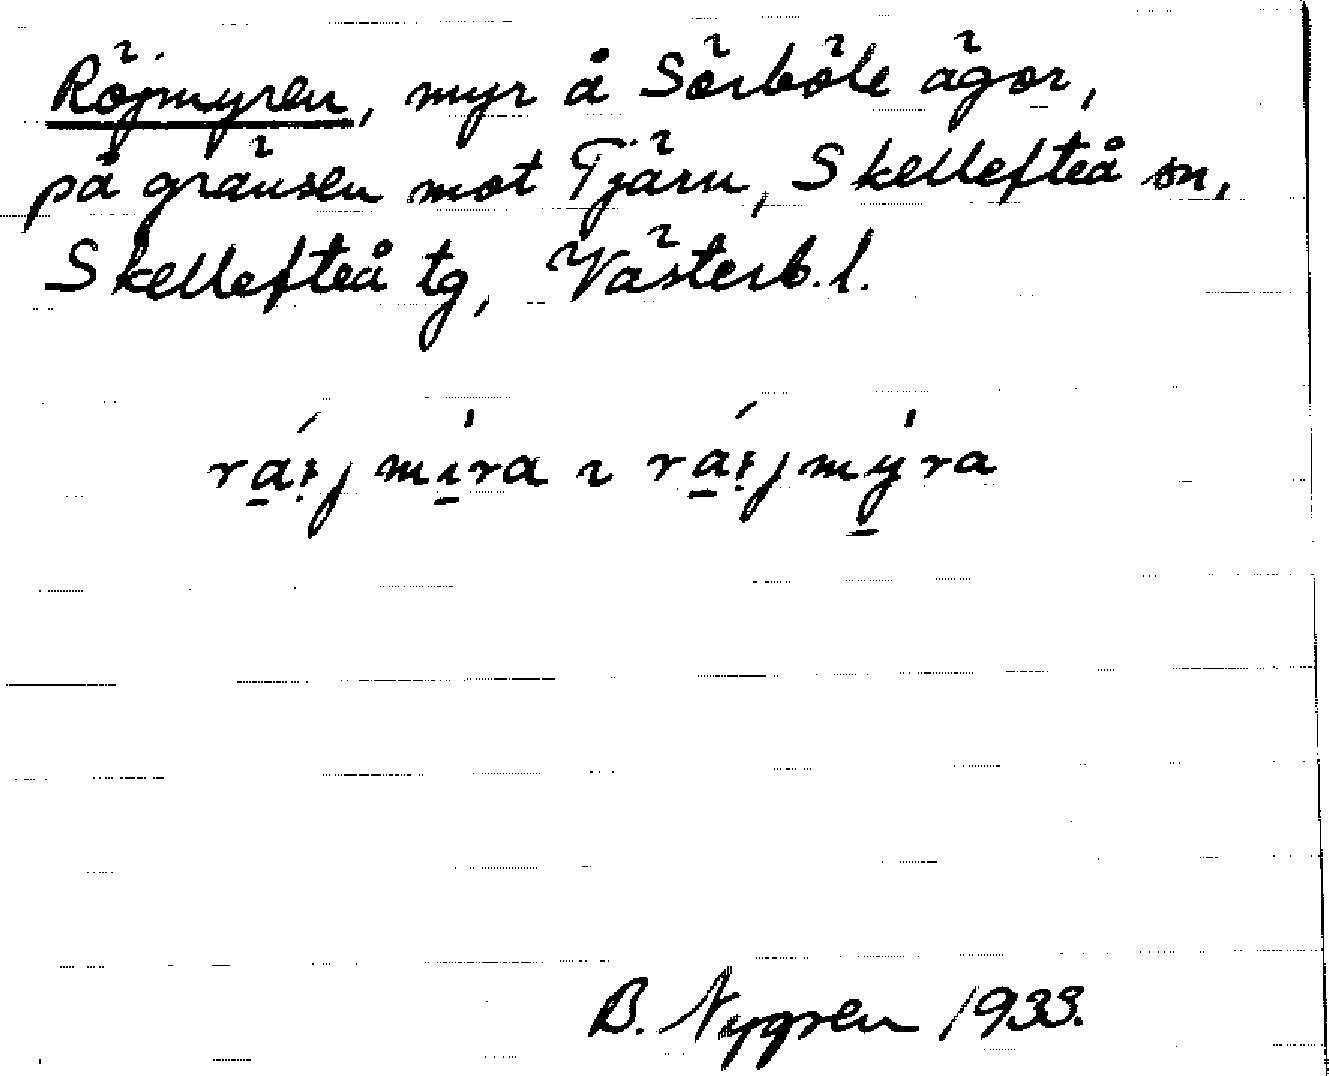 Röjmyren, myr å Sörböle ägor,
på gränsen mot Tjärn, Skellefteå sn,
Skellefteå tg, Västerb. l.
B. Nygren 1933.